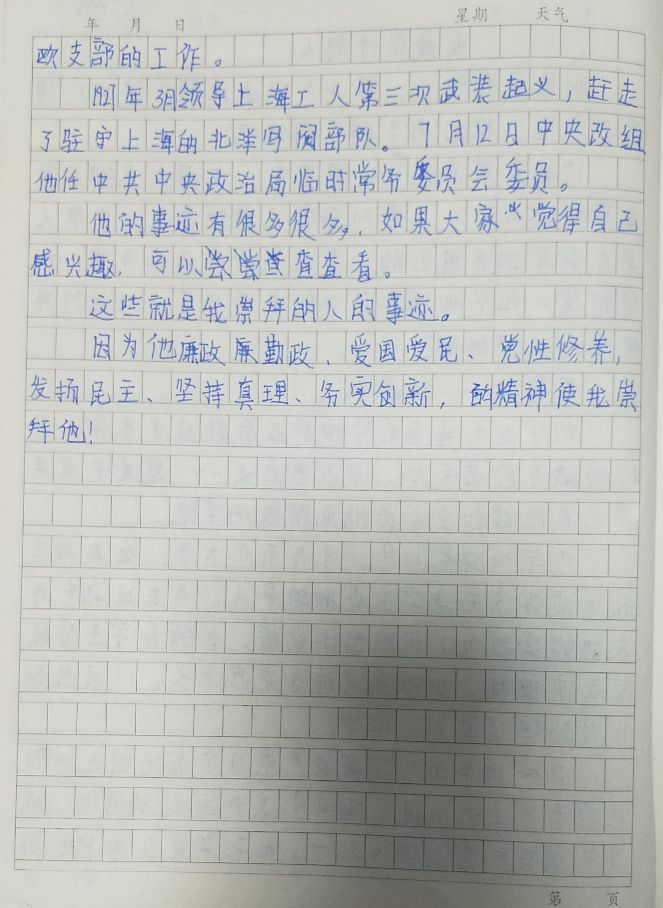 年 月 日 星期 天气
欧支部的工作。
1927年3月领导上海工人第三次武装起义，赶走
了驻守上海的北洋军阀部队。7月12日中央改组
他任中共中央政治局临时常务委员会委员。
他的事迹有很多很多，如果大家觉得自己
感兴趣，可以尝尝查查查看。
这些就是我崇拜的人的事迹。
因为他廉政廉勤政、爱国爱民、党性修养，
发扬民主、坚持真理、务实创新，的精神使我崇
拜他！
第 页